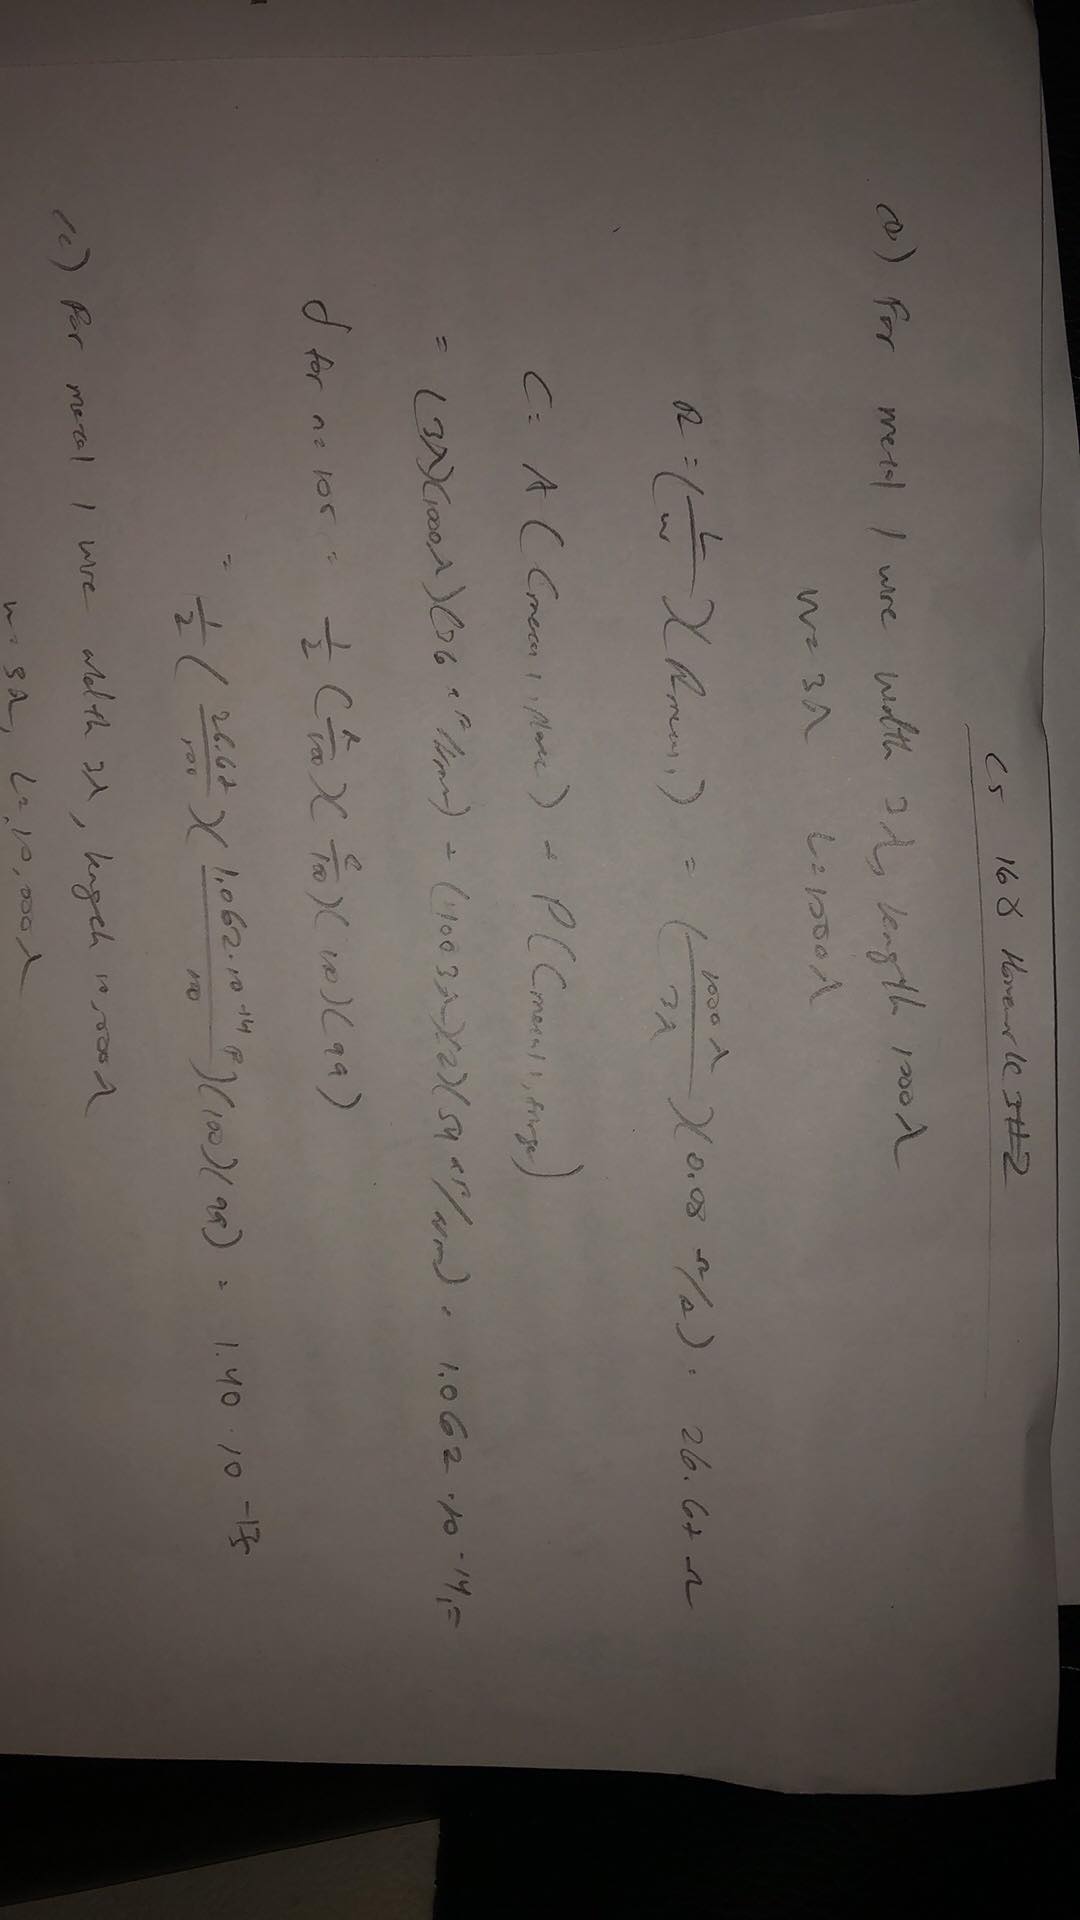 CS 168 Homework #2
a) For metal 1 wire width 3λ, length 1000λ
W = 3λ L = 1000λ
R = (L/W)(Rmetal1) = (1000λ/3λ)(0.08 Ω/□) = 26.67 Ω
C = A(Cmetal1,plate) + P(Cmetal1,fringe)
= (3λ)(1000λ)(36 aF/) + (1003λ)(2)(54 aF/) = 1.062·10^-14 F
δ for n = = 1/2 (R/100)(C/100)(100)(99)
= 1/2 (26.67/100)(1.062·10^-14 F/100)(100)(99) = 1.40·10^-13 s
(c) For metal 1 wire width 3λ, length 10,000λ
w = 3λ, L = 10,000λ